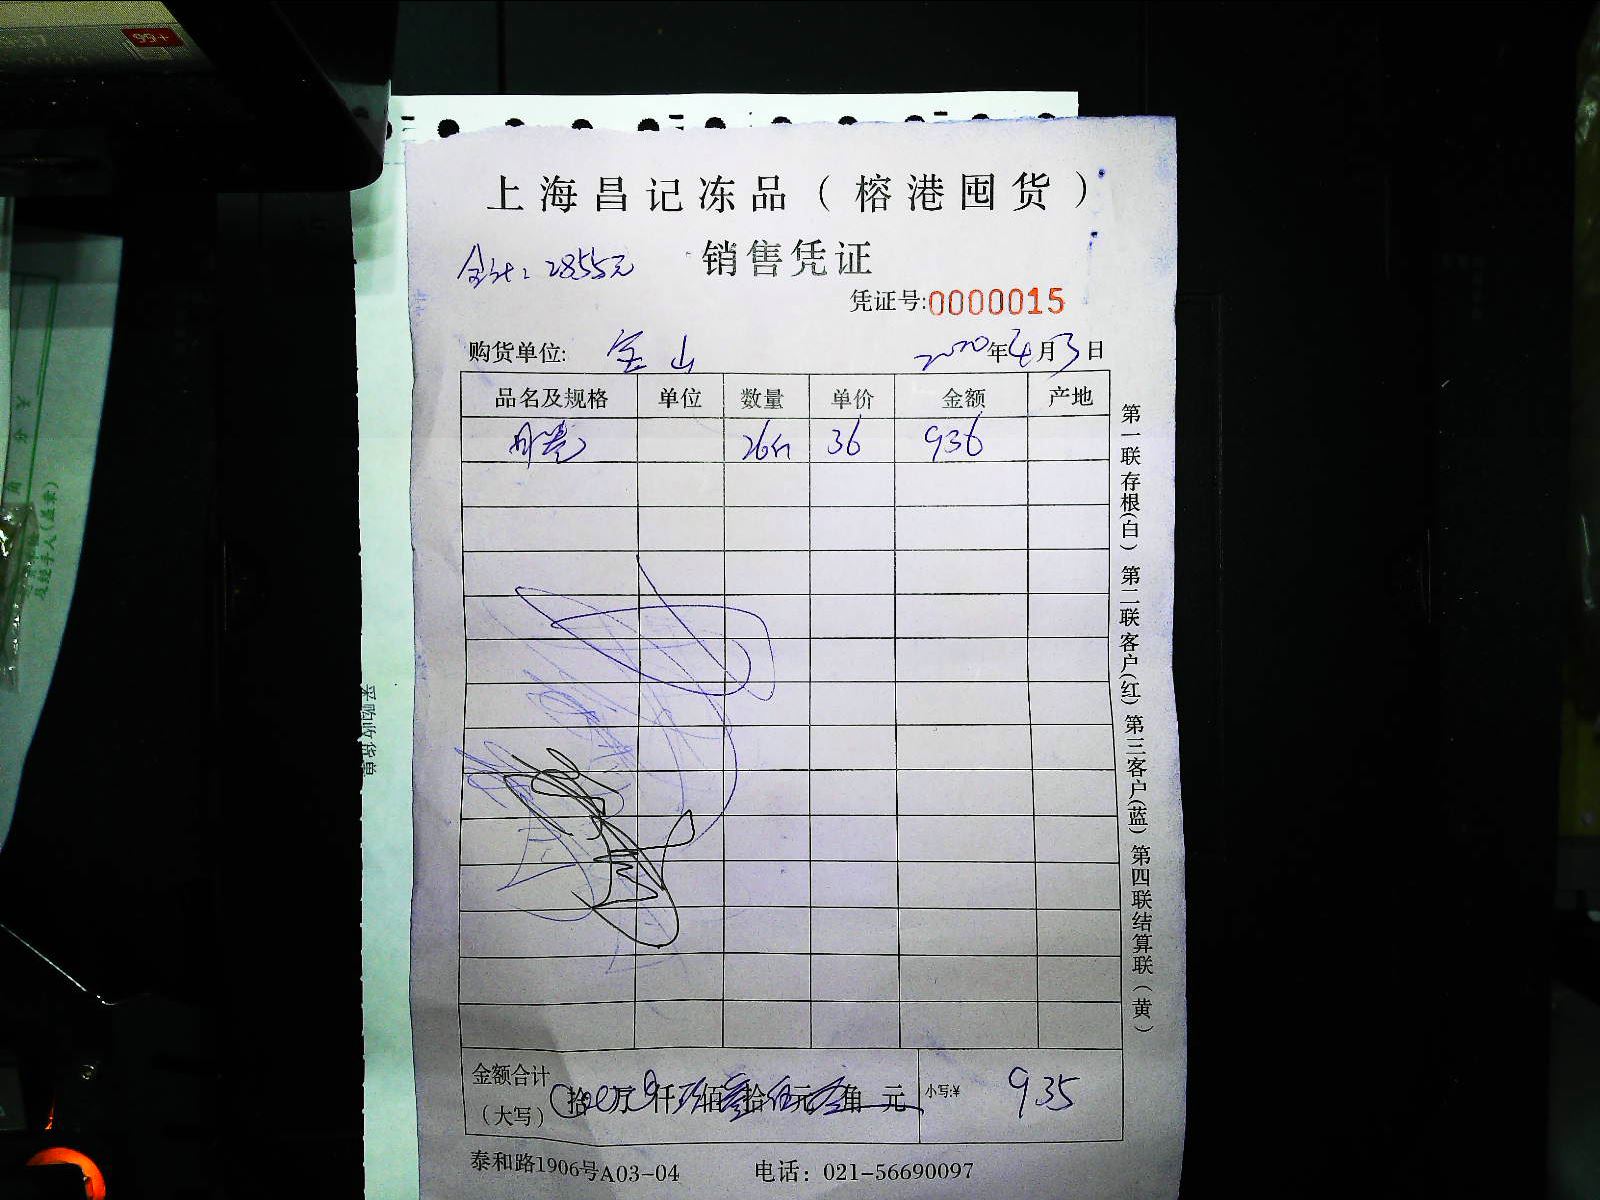 99+
上海昌记冻品（榕港囤货）
合计：2855元
销售凭证
凭证号:0000015
购货单位: 宝山 2020年4月3日
品名及规格 单位 数量 单价 金额 产地
26斤 36 936
金额合计
（大写） 拾 万 仟 佰 拾 元 角 元 小写:¥ 935
泰和路1906号A03-04 电话：021-56690097
第一联存根(白) 第二联客户(红) 第三客户(蓝) 第四联结算联(黄)
采购收货单